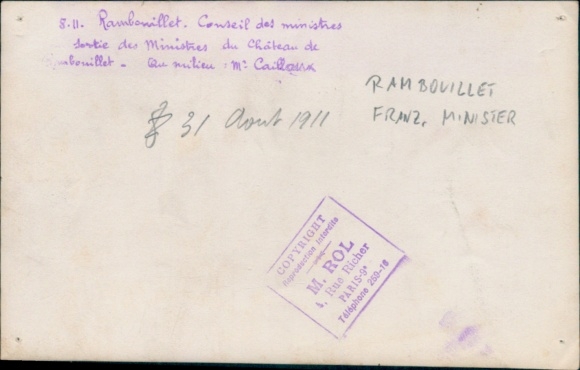 8-11. Rambouillet. Conseil des ministres
Sortie des Ministres du Château de
Rambouillet - Au milieu : Mr Caillaux
31 Aout 1911
RAMBOUILLET
FRANZ. MINISTER
COPYRIGHT
Reproduction Interdite
M. ROL
4, Rue Richer
PARIS-9e
Téléphone 259-16